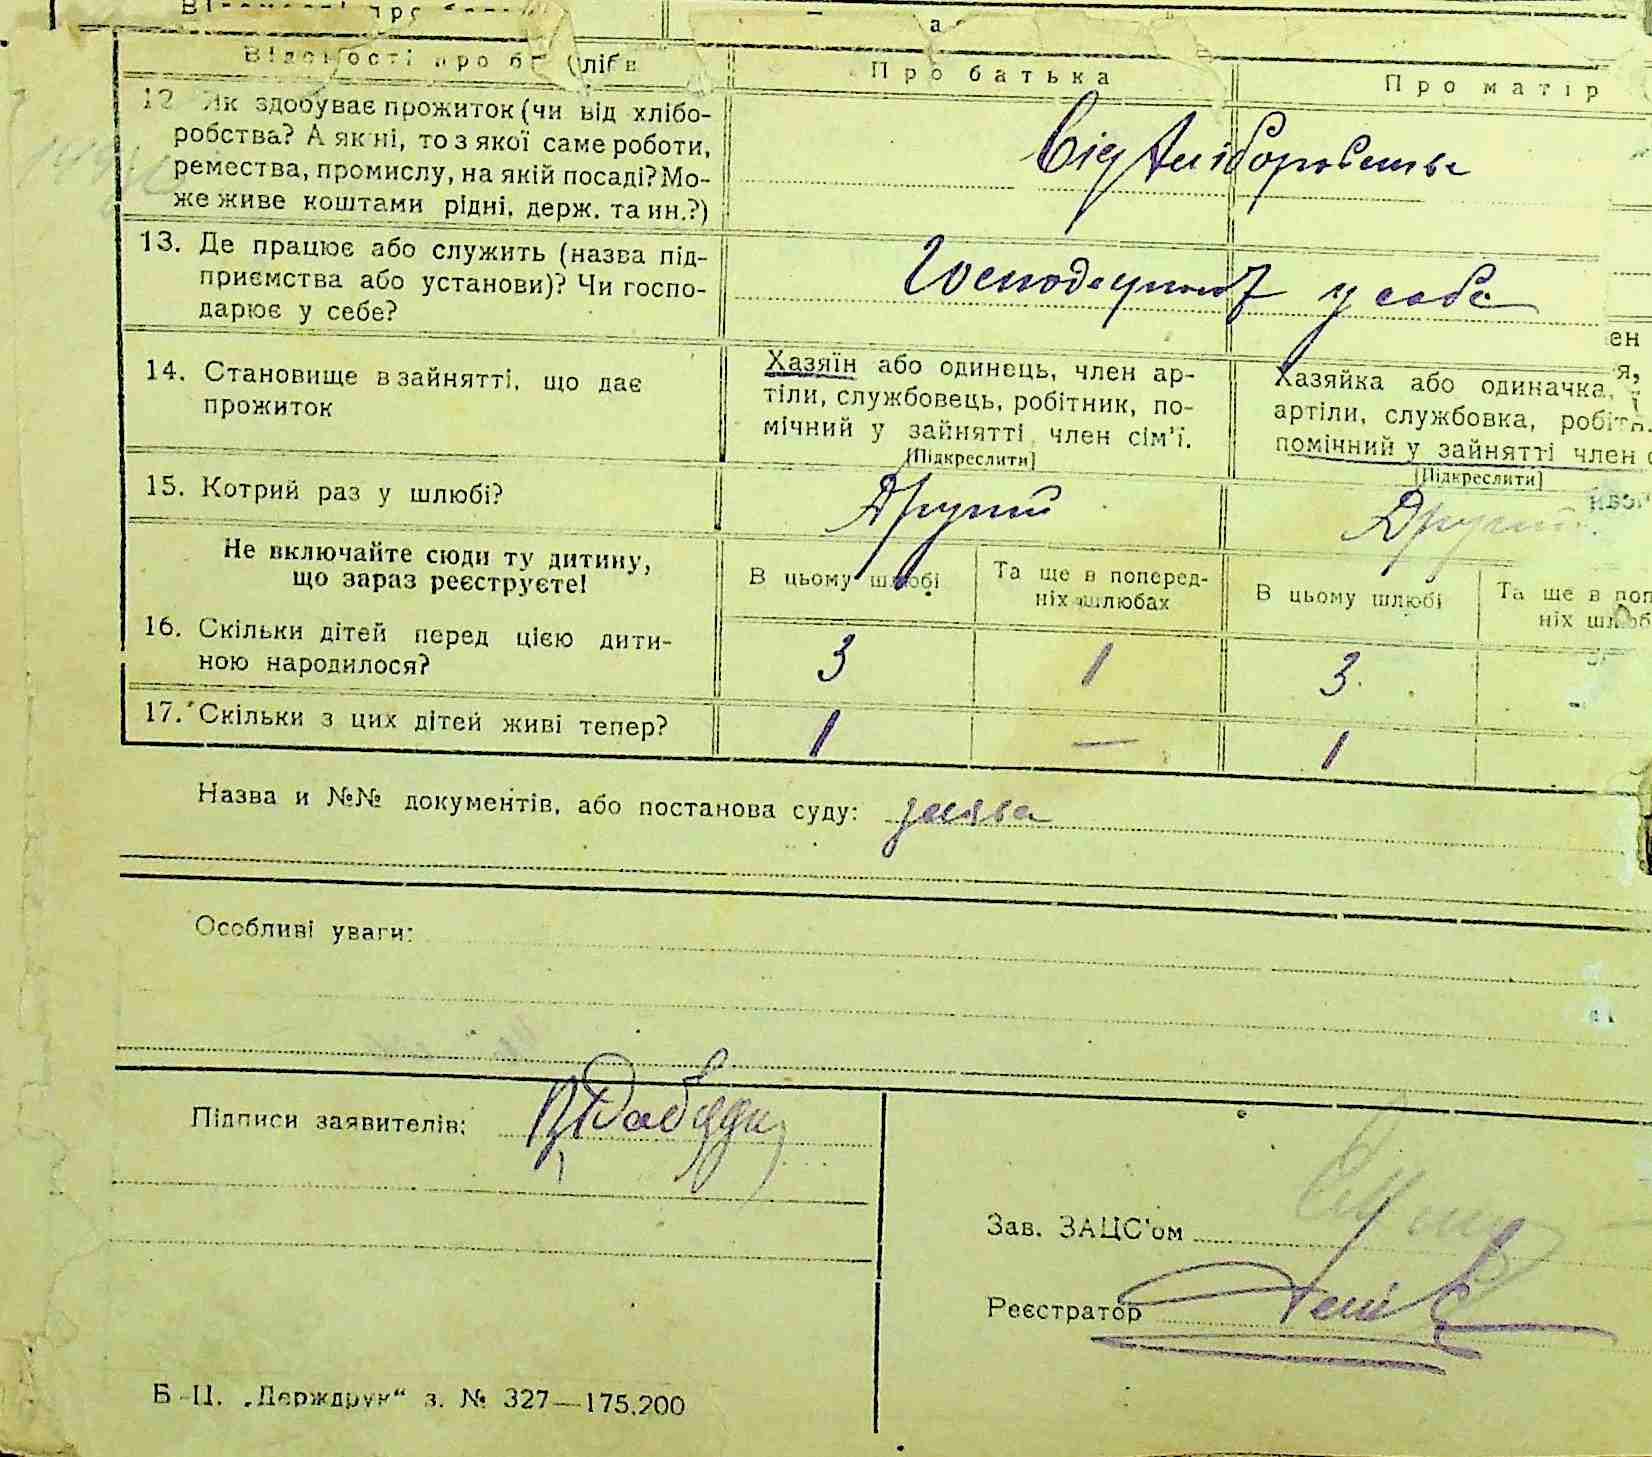 Відомості про батьків
Про батька
Про матір
12. Як здобуває прожиток (чи від хлібо-
робства? А як ні, то з якої саме роботи,
ремества, промислу, на якій посаді? Мо-
же живе коштами рідні, держ. та ин.?)
Від хліборобства
13. Де працює або служить (назва під-
приємства або установи)? Чи госпо-
дарює у себе?
у себе
14. Становище в зайнятті, що дає
прожиток
Хазяїн або одинець, член ар-
тіли, службовець, робітник, по-
мічний у зайнятті член сім'ї.
[Підкреслити]
Хазяйка або одиначка,
артіли, службовка, робітн.
помічний у зайнятті член с
[Підкреслити]
15. Котрий раз у шлюбі?
Другий
Другий
Не включайте сюди ту дитину,
що зараз реєструєте!
В цьому шлюбі
Та ще в поперед-
ніх шлюбах
В цьому шлюбі
Та ще в поп
ніх шлюб
16. Скільки дітей перед цією дити-
ною народилося?
3 1 3
17. Скільки з цих дітей живі тепер?
1 — 1 -
Назва и №№ документів, або постанова суду: заява
Особливі уваги:
Підписи заявителів:
Зав. ЗАЦС'ом
Реєстратор
Б-Ц. „Держдрук“ з. № 327—175.200